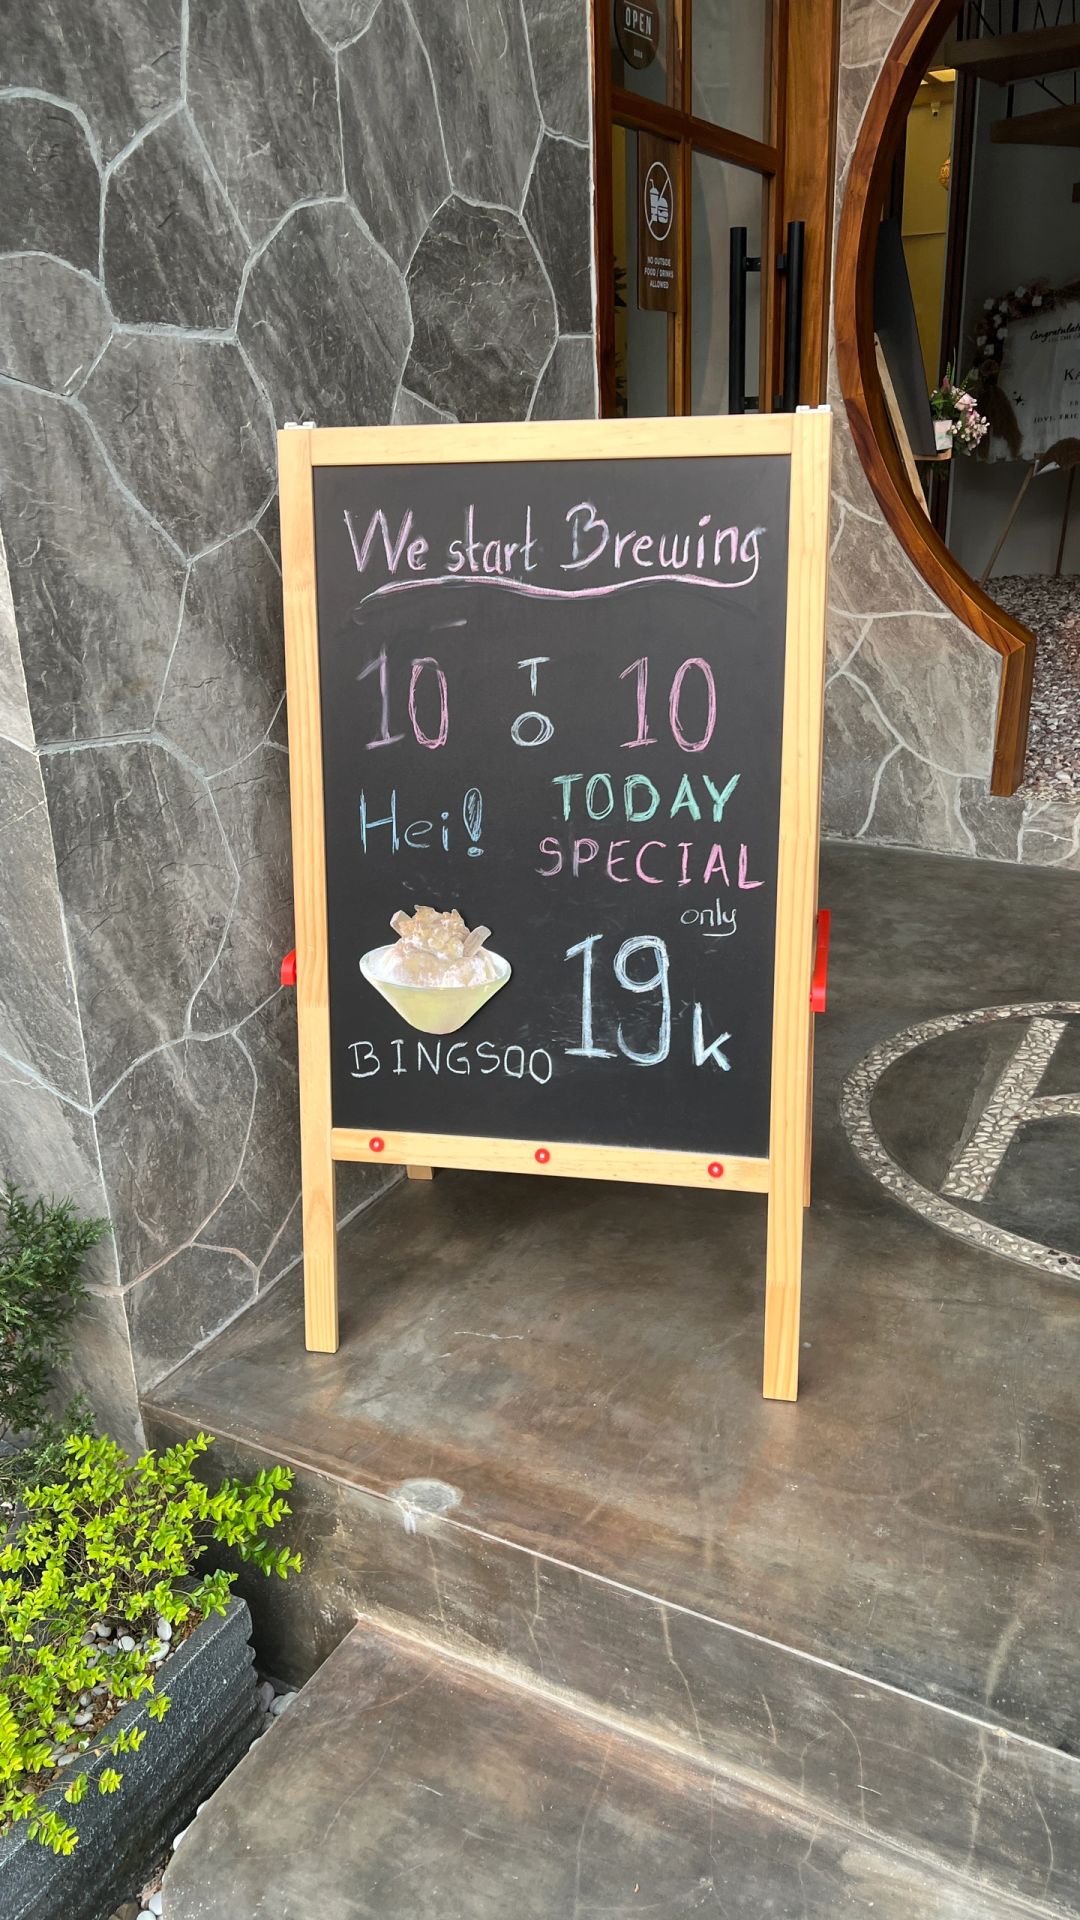 OPEN
NO OUTSIDE
FOOD / DRINKS
ALLOWED
Congratulat
KA
We start Brewing
10 TO 10
Hei!
TODAY
SPECIAL
only
19k
BINGSOO